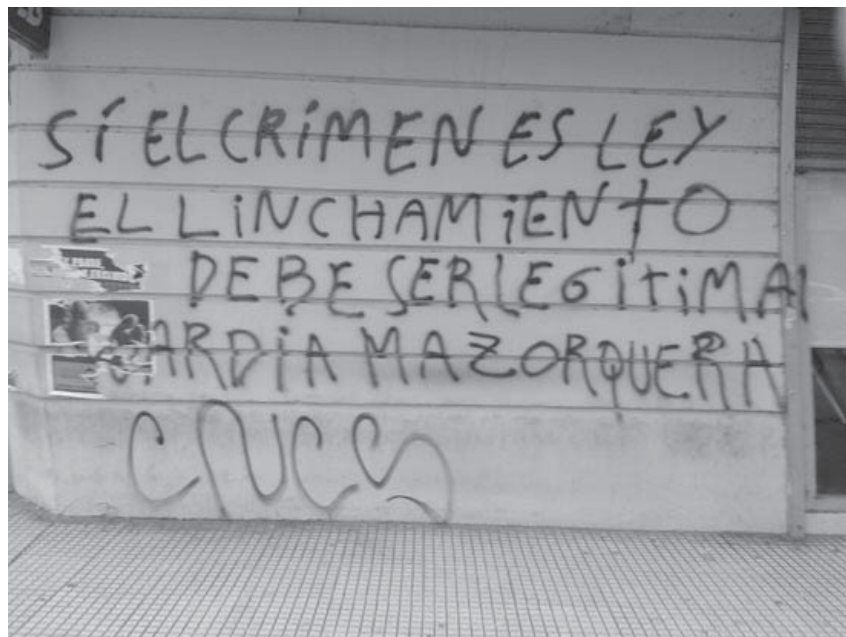 SÍ EL CRIMEN ES LEY
EL LINCHAMIENTO
DEBE SER LEGÍTIMA
MAZORQUERA